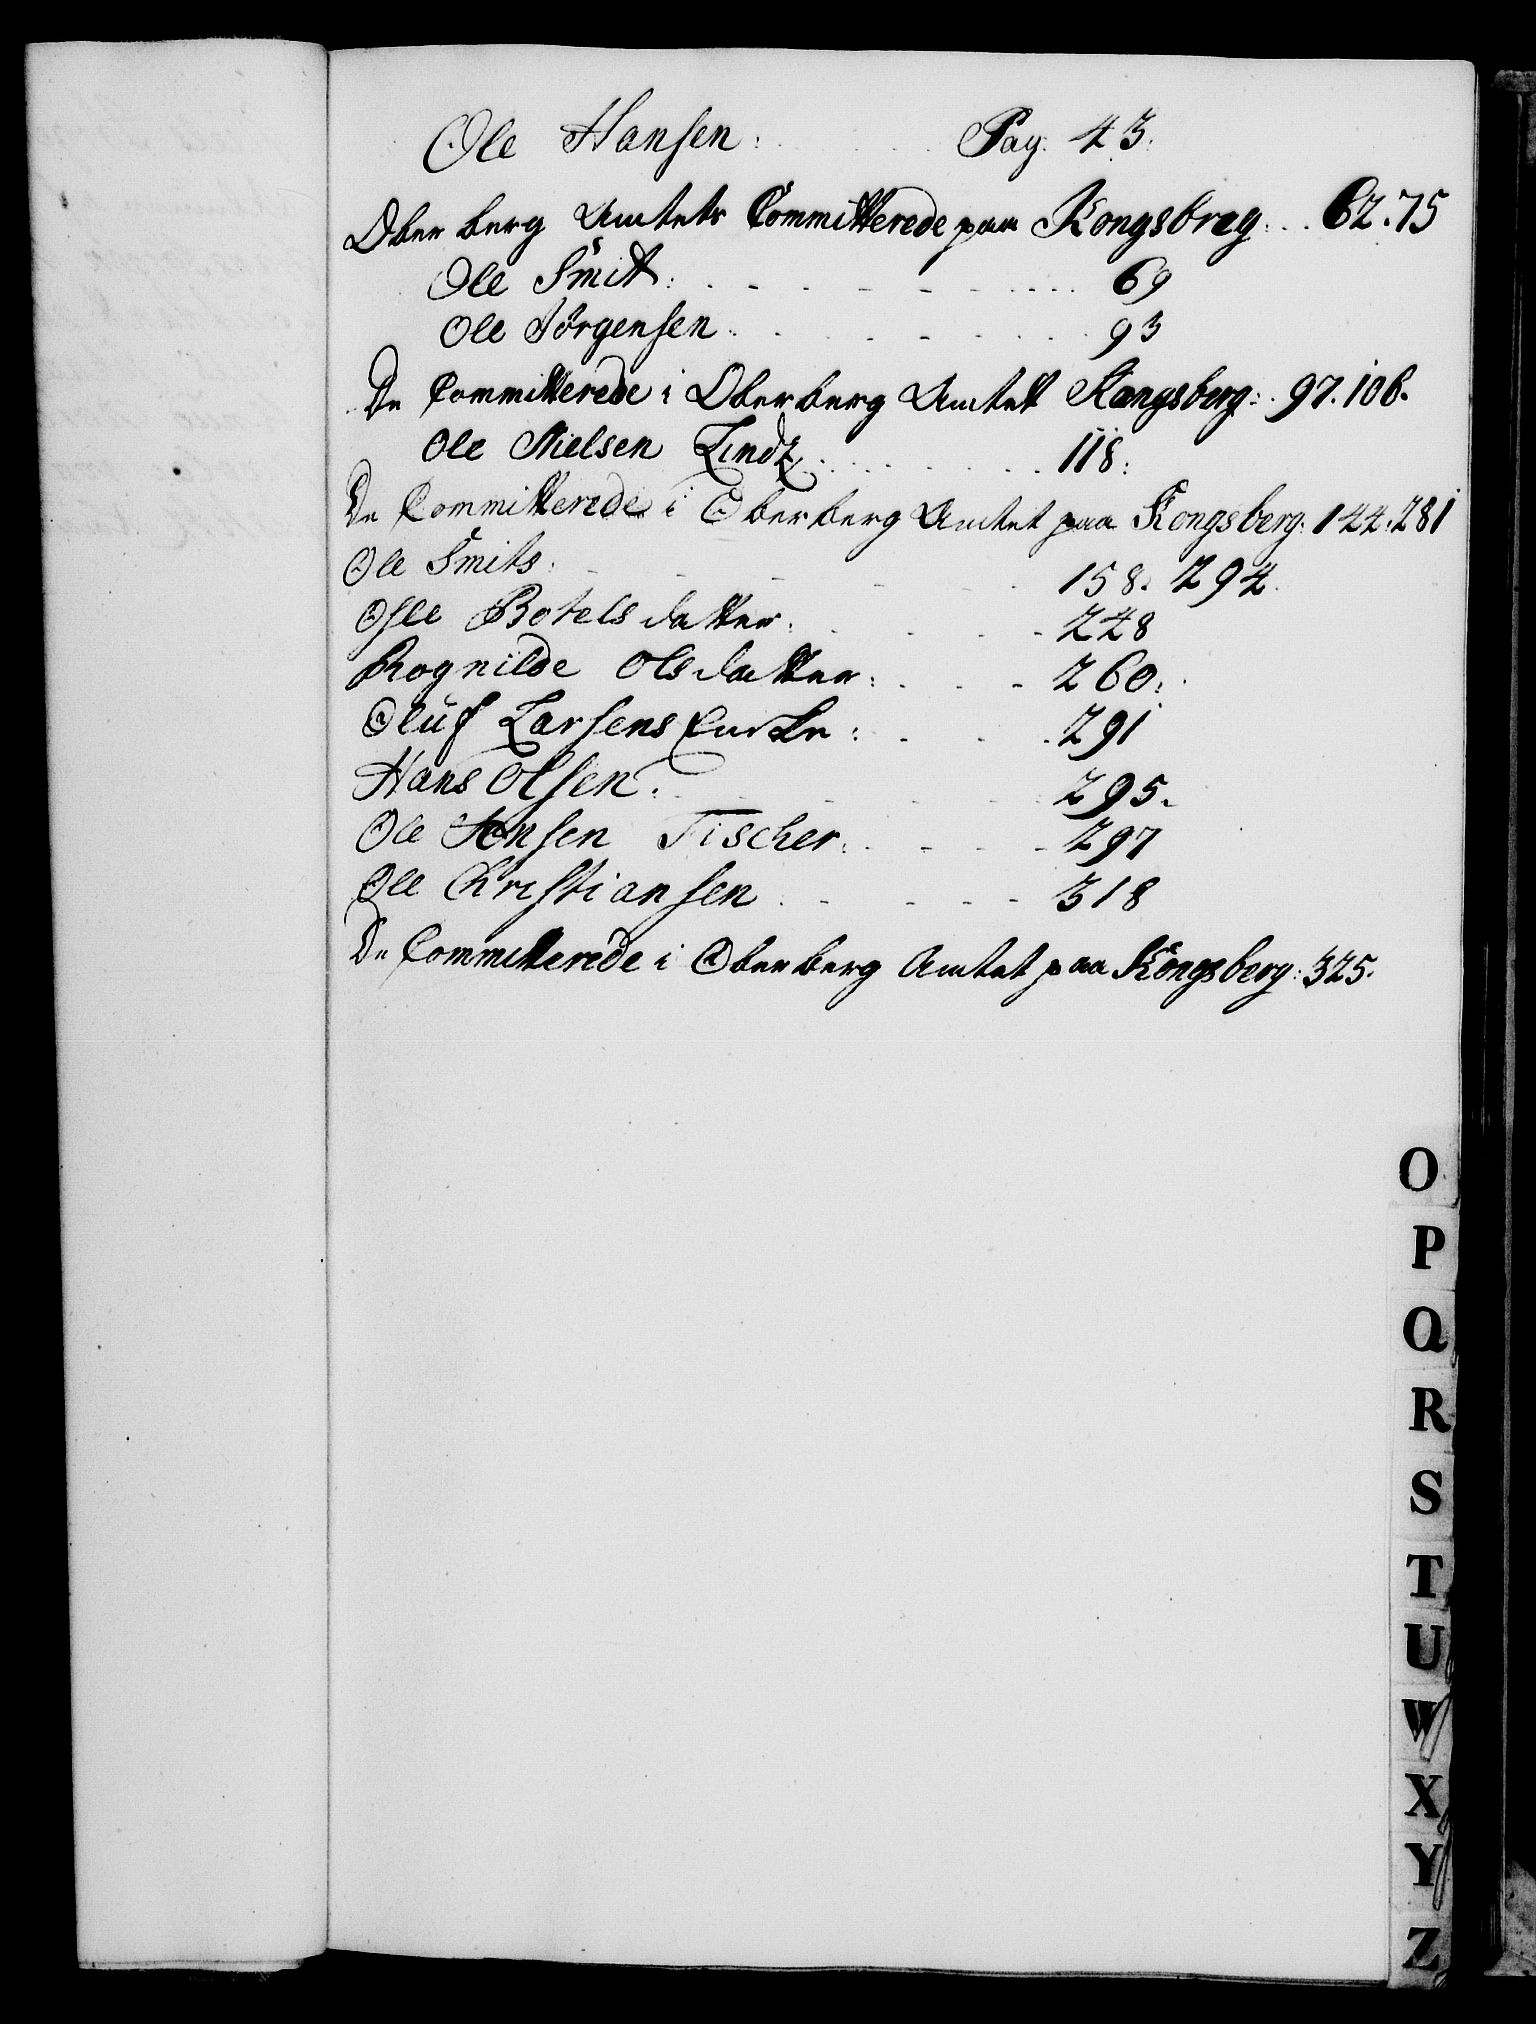 Ole Hansen: Pag. 43.
Oberberg Amtets Committerede paa Kongsbrey: . . 62. 75
Ole Smit: . . . . . 69
Ole Jörgensen: . . . . . 93
De Committerede i Oberberg Amtet Kongsberg: . 97. 106.
Ole Nielsen Lindz . . . . . 118:
De Committerede i Oberberg Amtet paa Kongsberg: 144. 281
Ole Smits: . . . . . 158. 294.
Osle Botels datter: . . . . . 228
Rognilde Olsdatter: . . . . 260:
Oluf Larsens Encke: . . . 291
Hans Olsen: . . . . . 295.
Ole Jensen Fischer: . . . . 297
Ole Christiansen . . . . . 318
De Committerede i Oberberg Amtet paa Kongsberg: 325.
O
P
Q
R
S
T
U
W
X
Y
Z